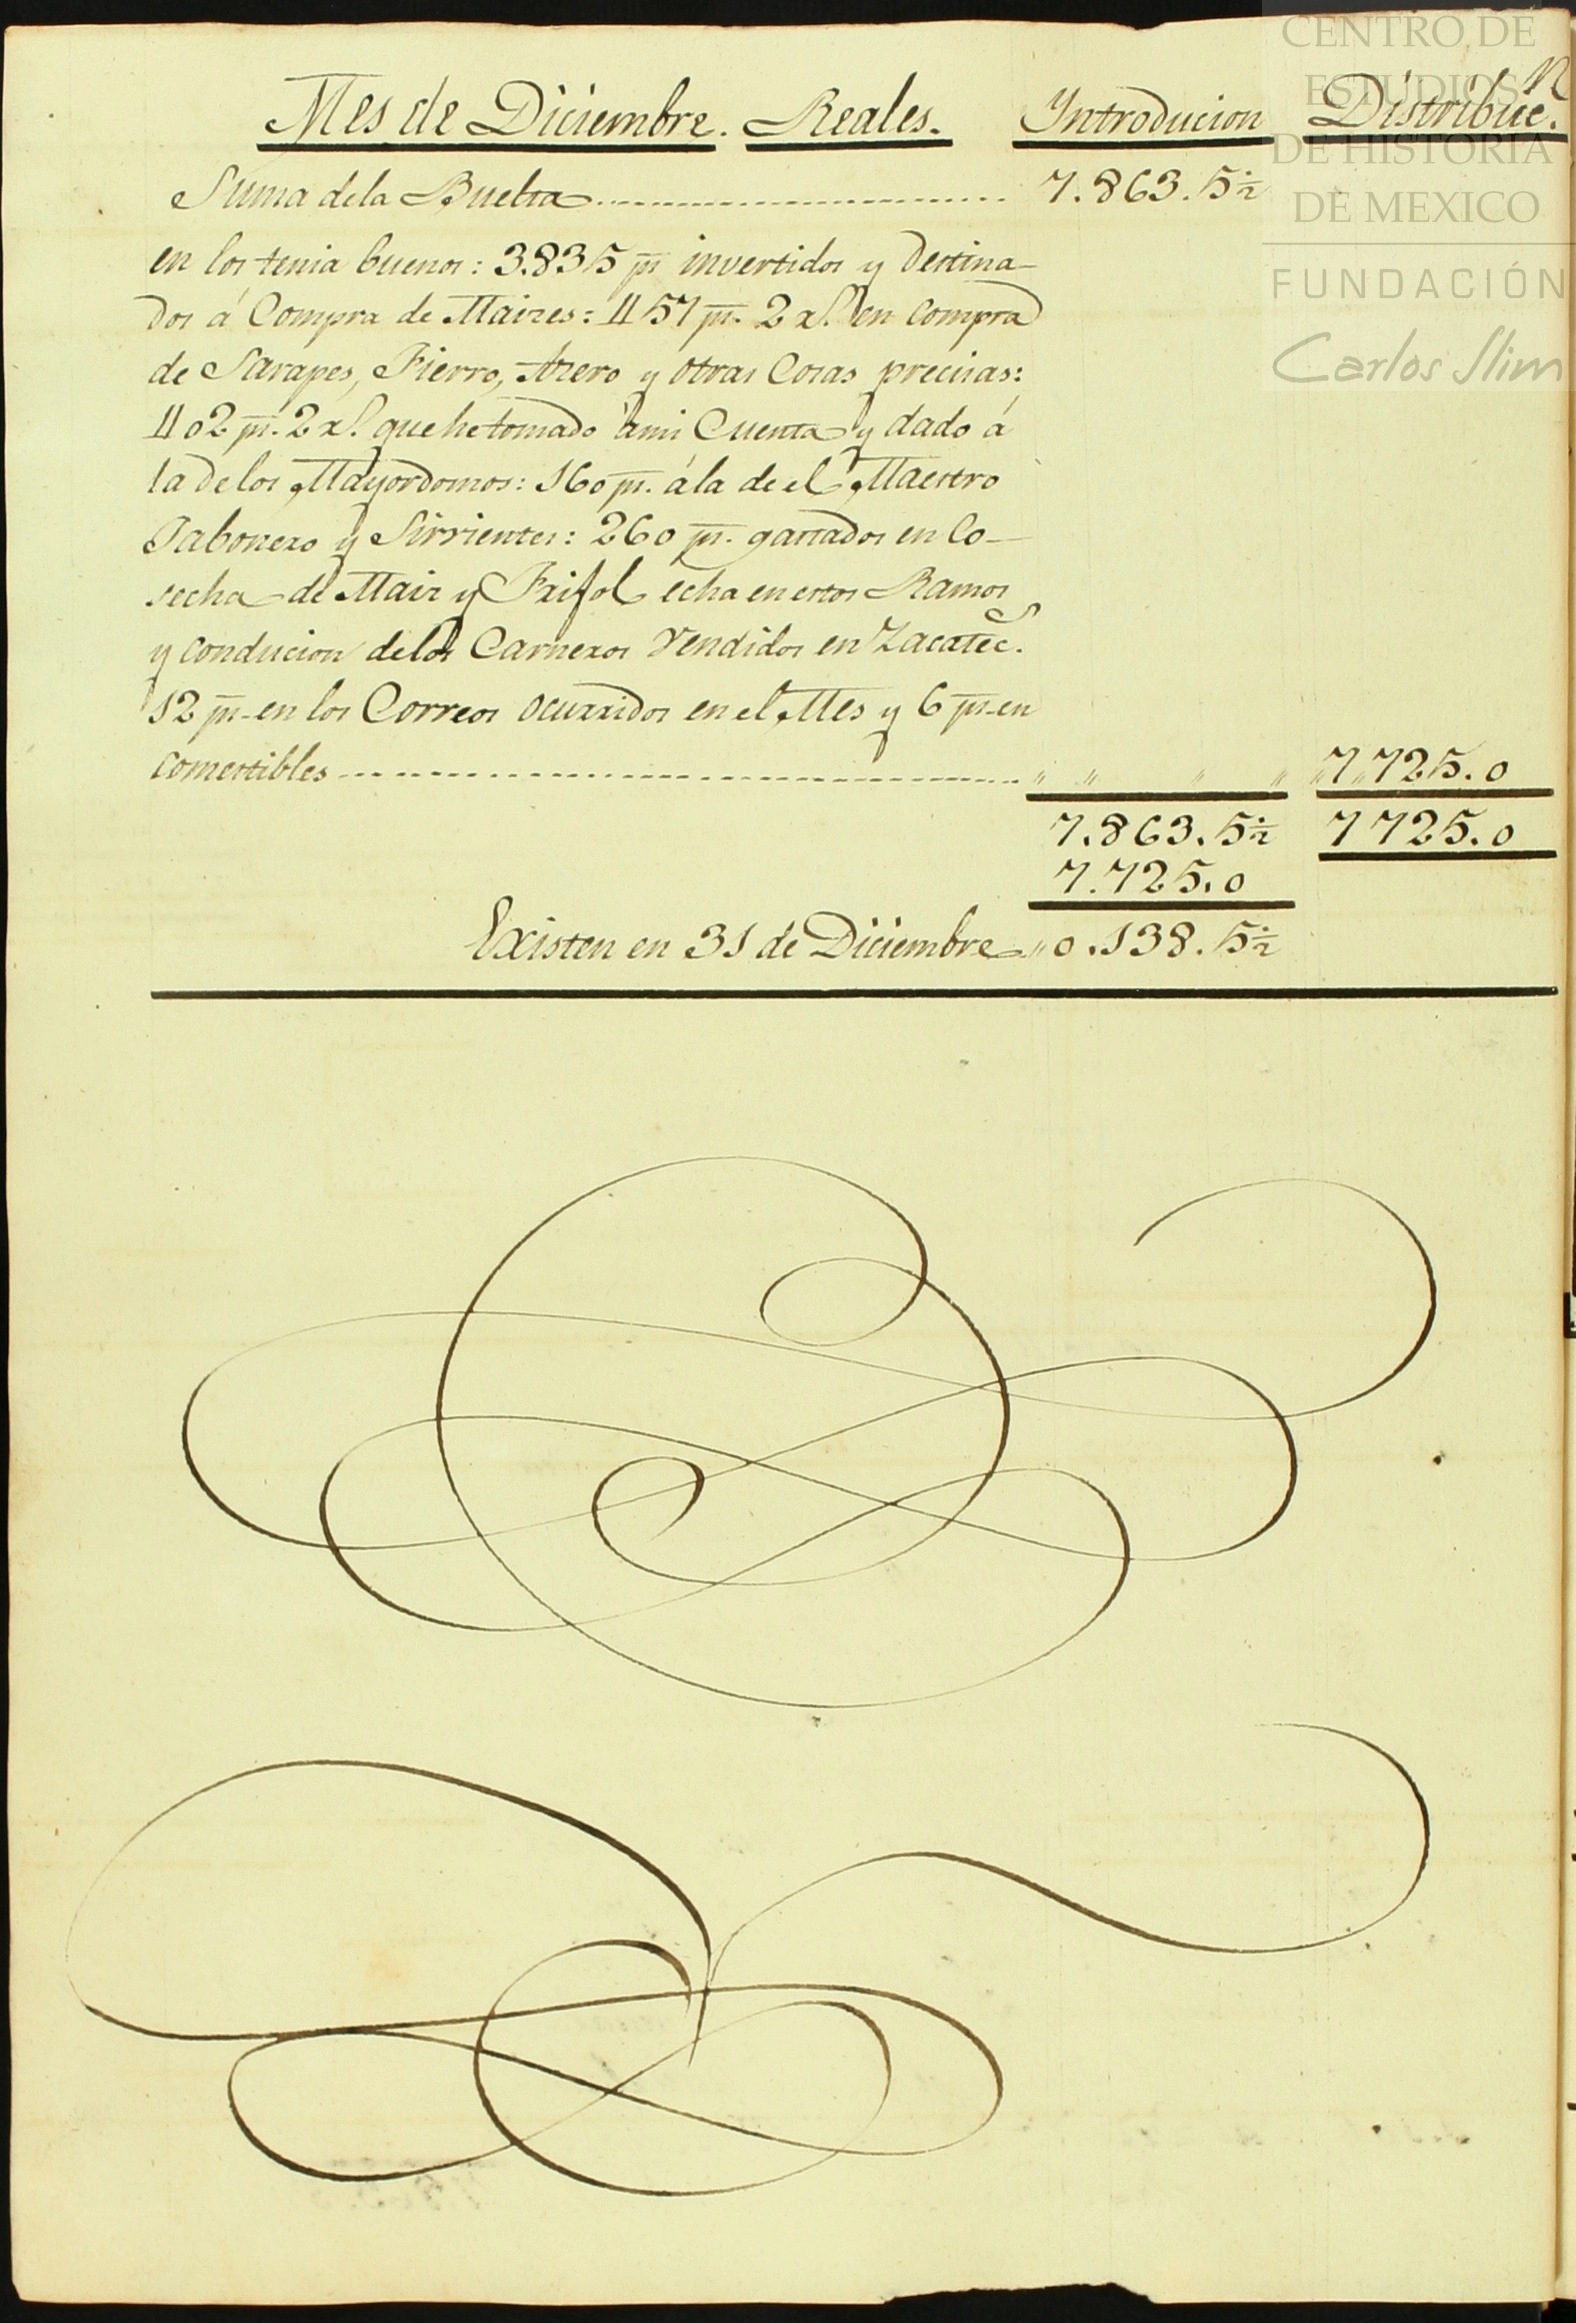 Mes de Diciembre. Reales. Introducion Distribuc.n
Suma dela Buelta 7.863.5½
en los tenia buenos: 3.835 ps invertidos y destina-
dos á Compra de Maizes: 1157 ps. 2 rs. en compra
de Sarapes, Fierro, Azero y otras Cosas precisas:
1102 ps. 2 rs. que he tomado ami Cuenta y dado á
la de los Mayordomos: 160 ps. ála de el Maestro
Jabonero y Sirvientes: 260 ps. gastados en Co-
secha de Maiz y Frijol echa en estos Ramos
y conducion delos Carneros Vendidos en Zacatecs.
12 ps en los Correos ocurridos en el Mes y 6 ps en
comestibles 7725.0
7.863.5½ 7725.0
7.725.0
Existen en 31 de Diciembre 0.138.5½
CENTRO DE
ESTUDIOS
DE HISTORIA
DE MEXICO
FUNDACIÓN
Carlos Slim